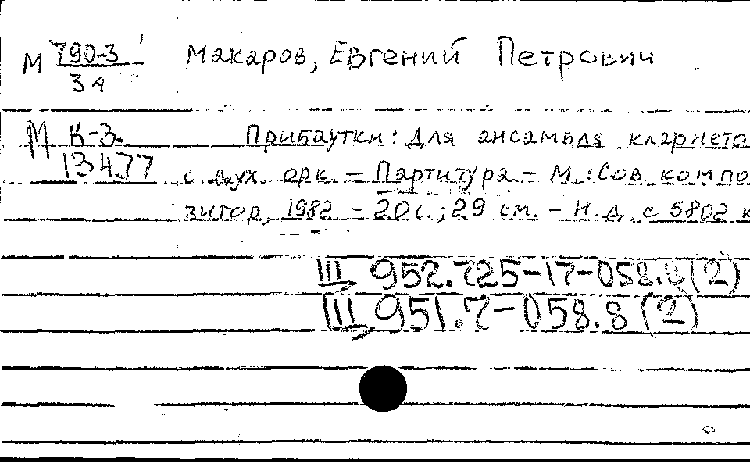 М 790-3 Макаров, Евгений Петрович
34
М К-3. Прибаутки: Для ансамбля кларнетов
13477 с дух. орк. – Партитура. – М.: Сов. компо
зитор, 1982 – 20 с.; 29 см. – Н.д. с 5802 к
III 952.725-17-058.8(2)
III 951.7-058.8(2)